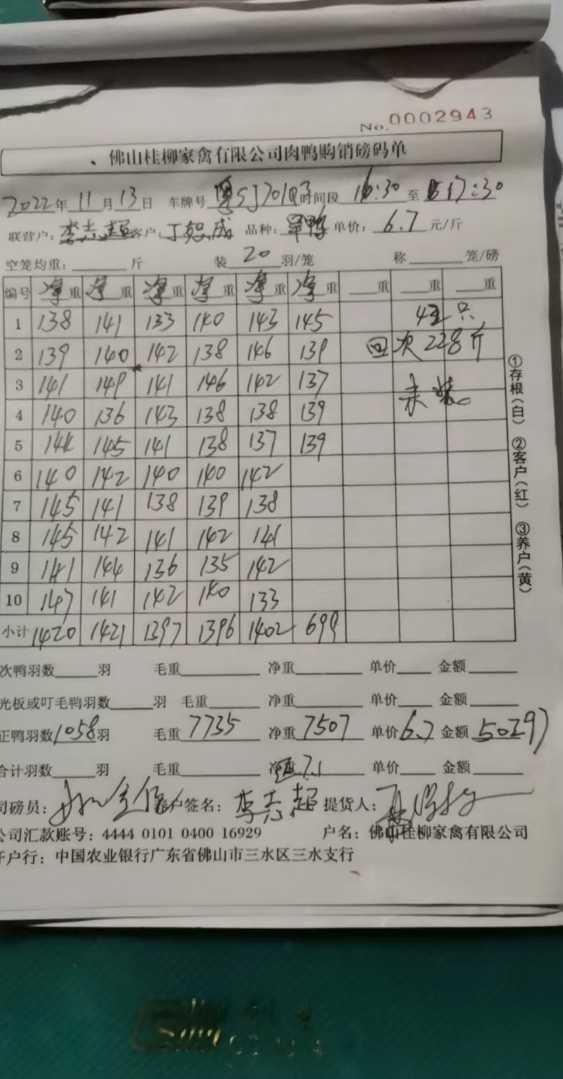 No.0002943
佛山桂柳家禽有限公司肉鸭购销磅码单
2022年 11月 13日 车牌号 时间段 16:30 至 17:30
联营户: 李志超 客户: 丁 成 品种: 单价: 6.7 元/斤
空笼均重: 斤 装 20 羽/笼 称 笼/磅
编号 净重 净重 净重 净重 净重 净重 重 重 重
1 138 141 133 140 143 145 只
2 139 140 142 138 146 139 回次228斤
3 141 149 141 146 142 137 未装
4 140 136 143 138 138 139
5 144 145 141 138 137 139
6 140 142 140 140 142
7 145 141 138 139 138
8 145 142 141 142 141
9 141 144 136 135 142
10 147 141 142 140 133
小计 1420 1421 1397 1396 1402 699
次鸭羽数 羽 毛重 净重 单价 金额
光板或叮毛鸭羽数 羽 毛重 净重 单价 金额
正鸭羽数 1058羽 毛重 7735 净重 7507 单价 6.7 金额 50297
合计羽数 羽 毛重 净重 7.1 单价 金额
司磅员: 户签名: 李志超 提货人:
公司汇款账号: 4444 0101 0400 16929 户名: 佛山桂柳家禽有限公司
开户行: 中国农业银行广东省佛山市三水区三水支行
①存根(白) ②客户(红) ③养户(黄)